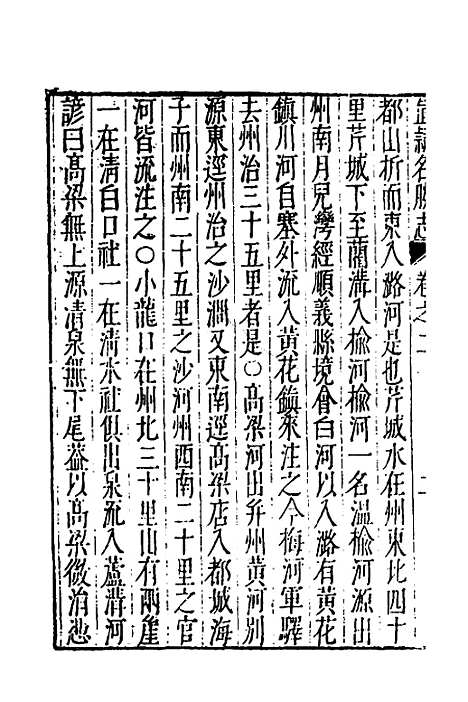 直隸名勝志 卷之二 二
都山折而東入潞河是也芹城水在州東北四十
里芹城下至藺溝入榆河榆河一名溫榆河源出
州南月兒灣經順義縣境會白河以入潞有黃花
鎮川河自塞外流入黃花鎮來注之今榆河軍驛
去州治三十五里者是〇高梁河出并州黃河別
源東逕州治之沙澗又東南逕高梁店入都城海
子而州南二十五里之沙河州西南二十里之官
河皆流注之〇小龍口在州北三十里山有兩崖
一在清白口社一在清水社俱出泉流入蘆溝河
諺曰高梁無上源清泉無下尾葢以高梁微涓